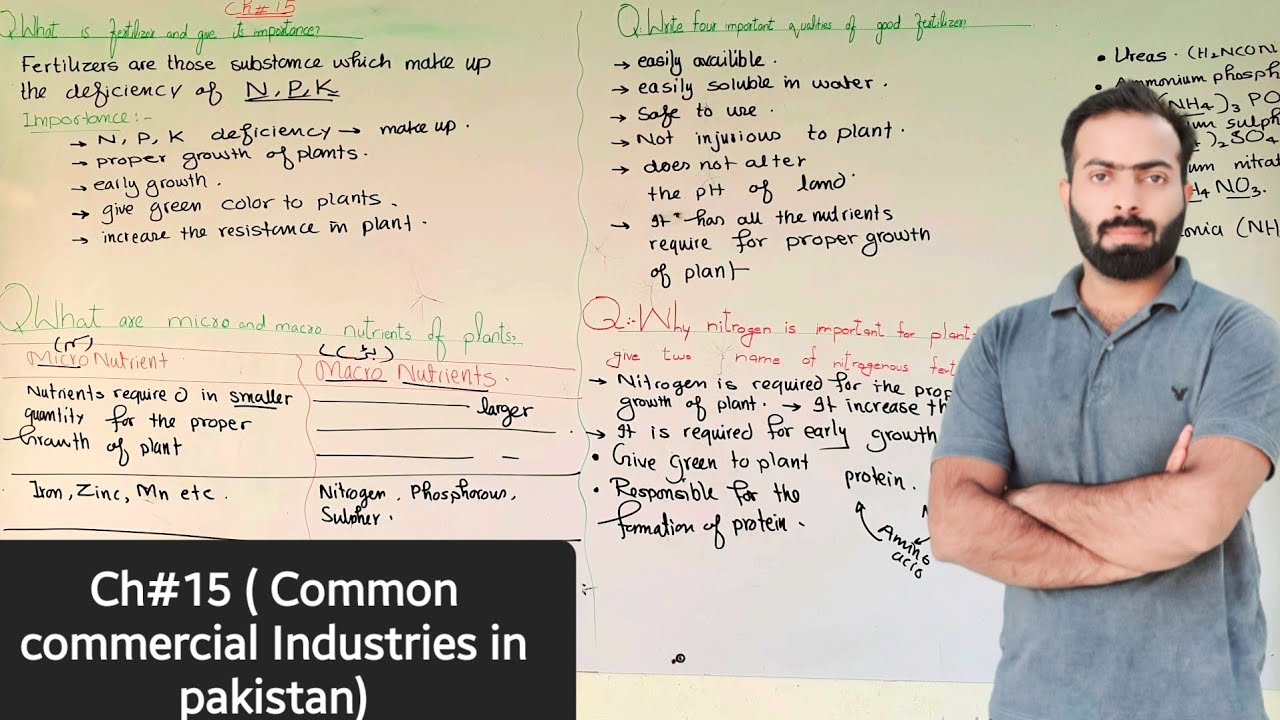 Ch#15
Q What is fertilizer and give its importance?
Fertilizers are those substance which make up
the deficiency of N, P, K
Importance:-
→ N, P, K deficiency → make up.
→ proper growth of plants.
→ early growth.
→ give green color to plants.
→ increase the resistance in plant.
Q What are micro and macro nutrients of plants?
Micro Nutrient
Macro Nutrients.
Nutrients required in smaller
quantity for the proper
Growth of plant
larger
Iron, Zinc, Mn etc.
Nitrogen, Phosphorous,
Sulpher.
Q: Write four important qualities of good fertilizer?
→ easily availible.
→ easily soluble in water.
→ Safe to use.
→ Not injurious to plant.
→ does not alter
the pH of land.
→ It has all the nutrients
require for proper growth
of plant
• Ureas. (H2NCON
• Ammonium phosph
(NH4)3 PO
um sulph
)2SO4
um nitrat
H4 NO3.
onia (NH
Q:- Why nitrogen is important for plant
give two name of nitrogenous fert
→ Nitrogen is required for the prop
growth of plant. → It increase th
→ It is required for early growth
• Give green to plant
• Responsible for the
formation of protein.
protein.
Amino
acid
Ch#15 ( Common
commercial Industries in
pakistan)